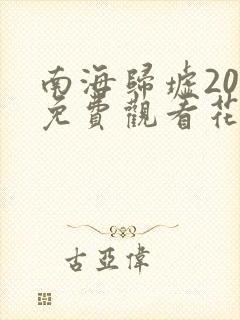 南海歸墟20
免費觀看花
古亞偉